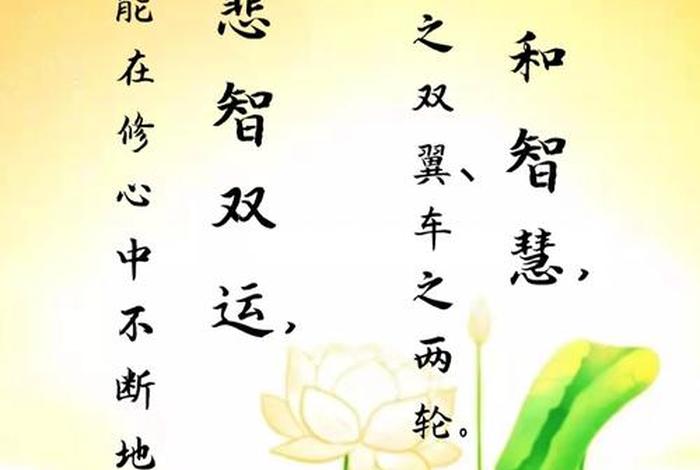 和智慧，
之双翼、车之两轮。
悲智双运，
能在修心中不断地